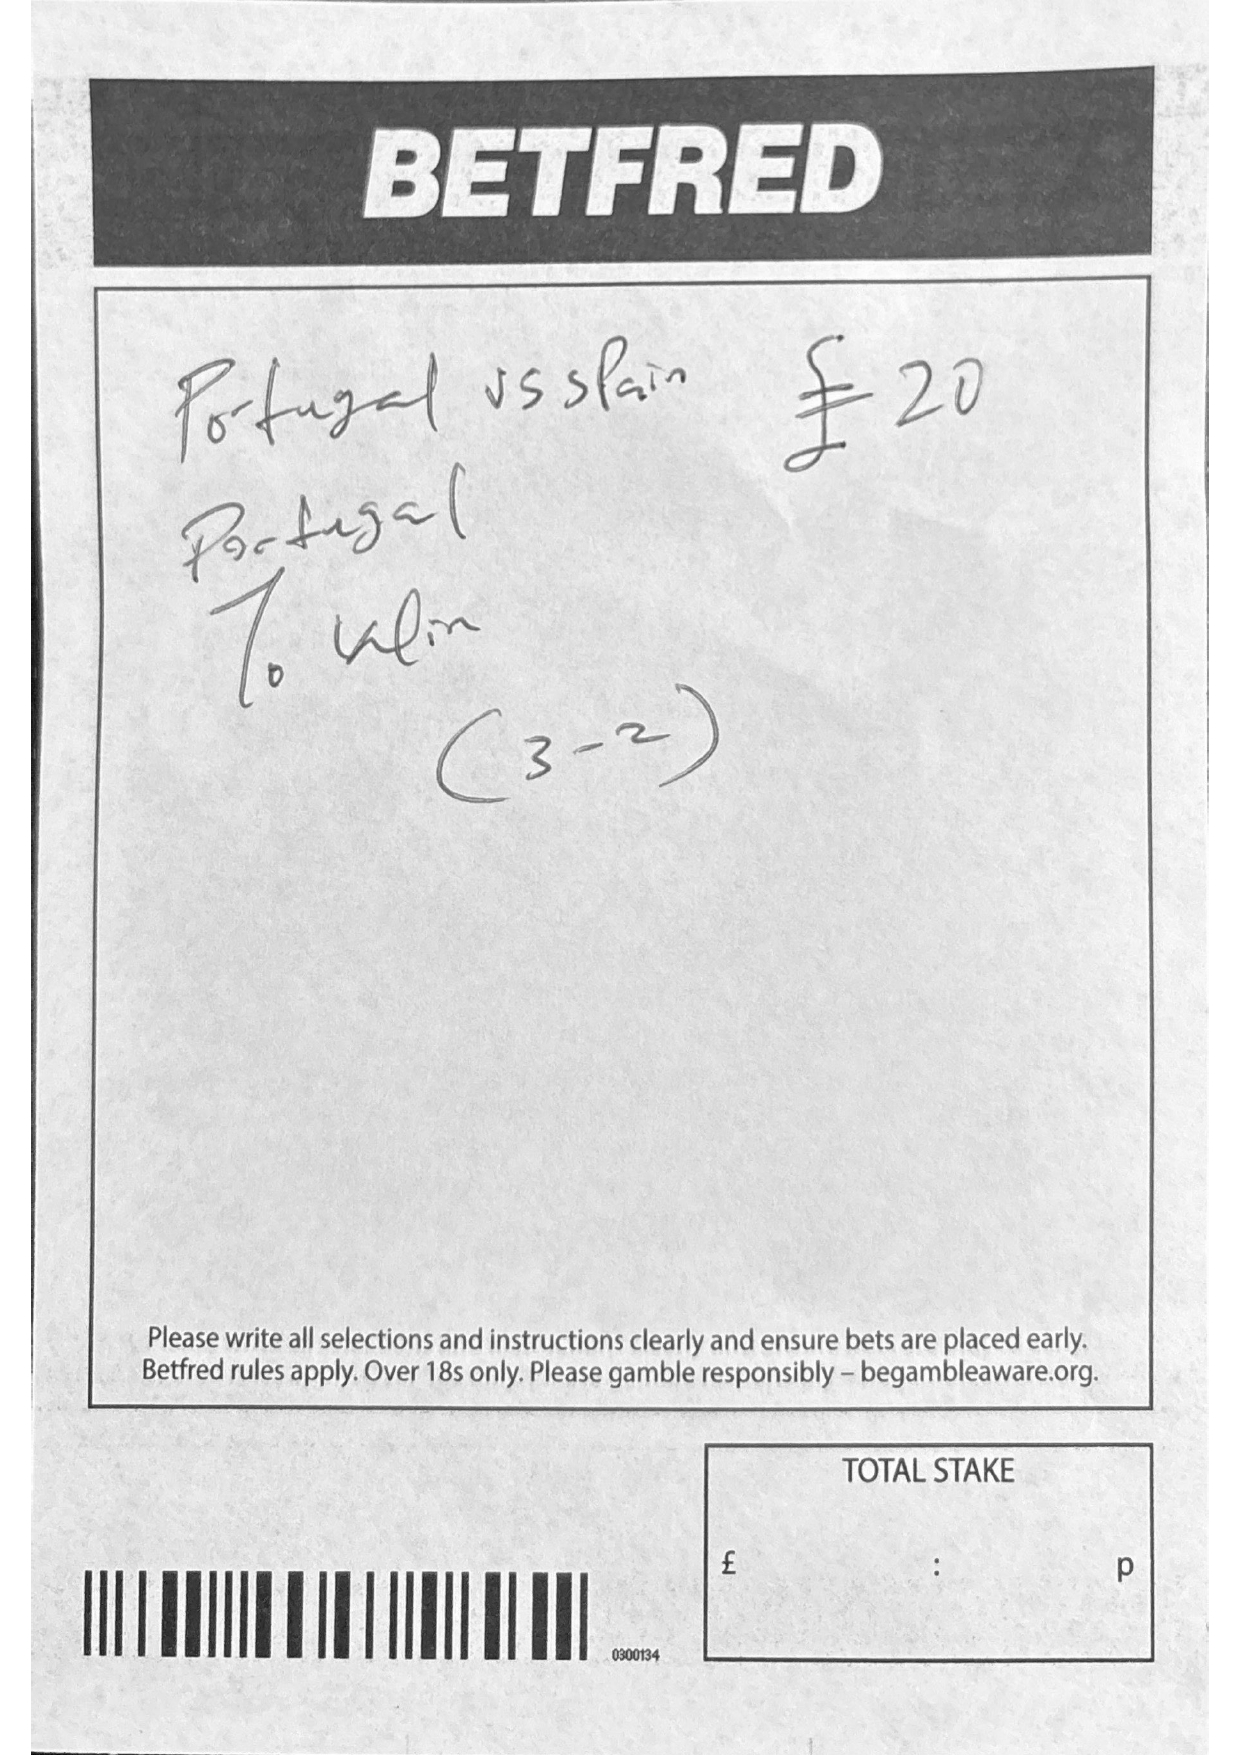 BETFRED
Portugal vs spain £20
Portugal
To win
(3-2)
Please write all selections and instructions clearly and ensure bets are placed early.
Betfred rules apply. Over 18s only. Please gamble responsibly – begambleaware.org.
TOTAL STAKE
£ : p
0300134